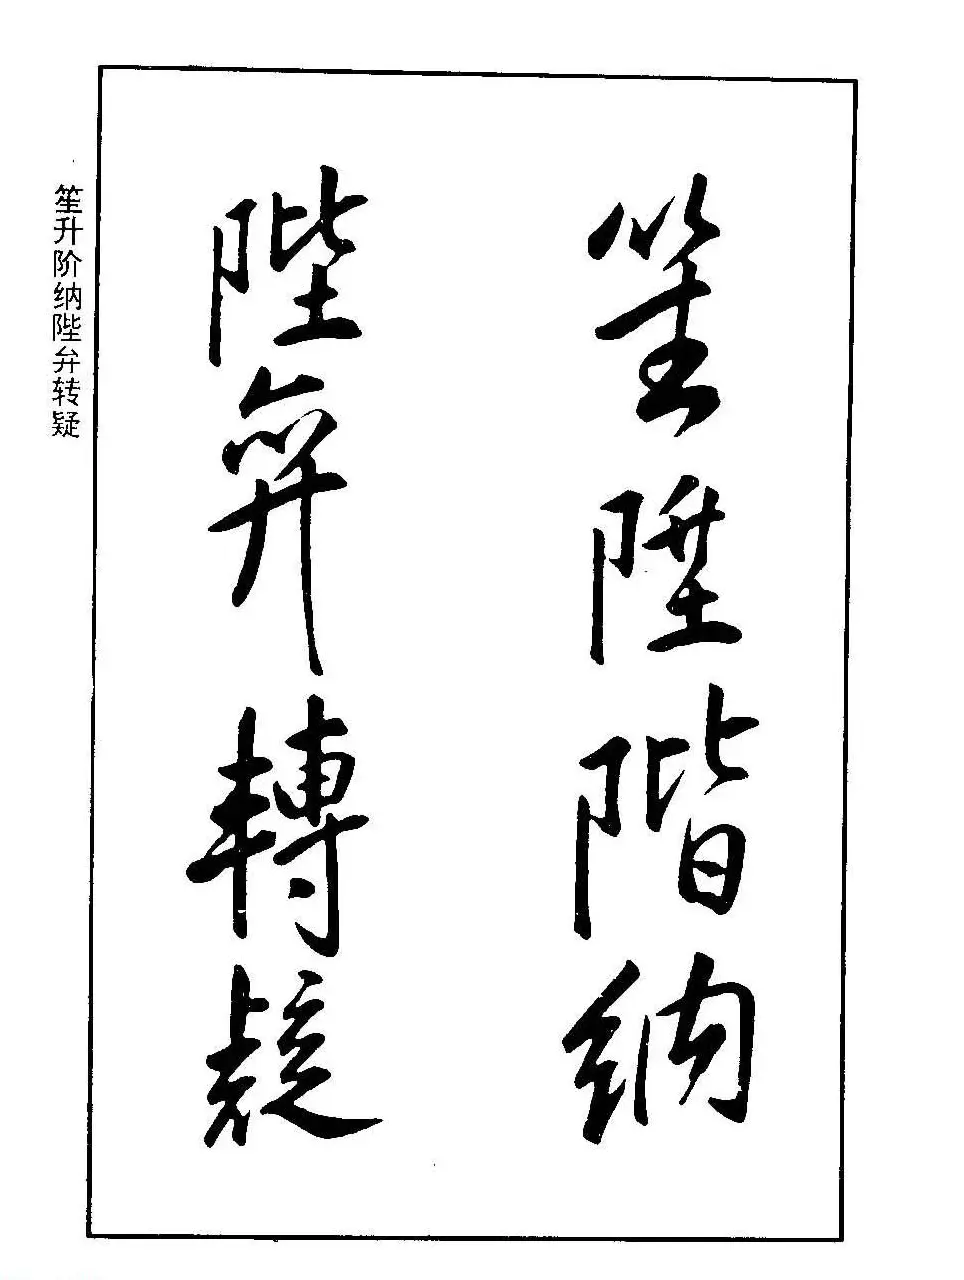 笙陞階納
陛弁轉疑
笙升阶纳陛弁转疑